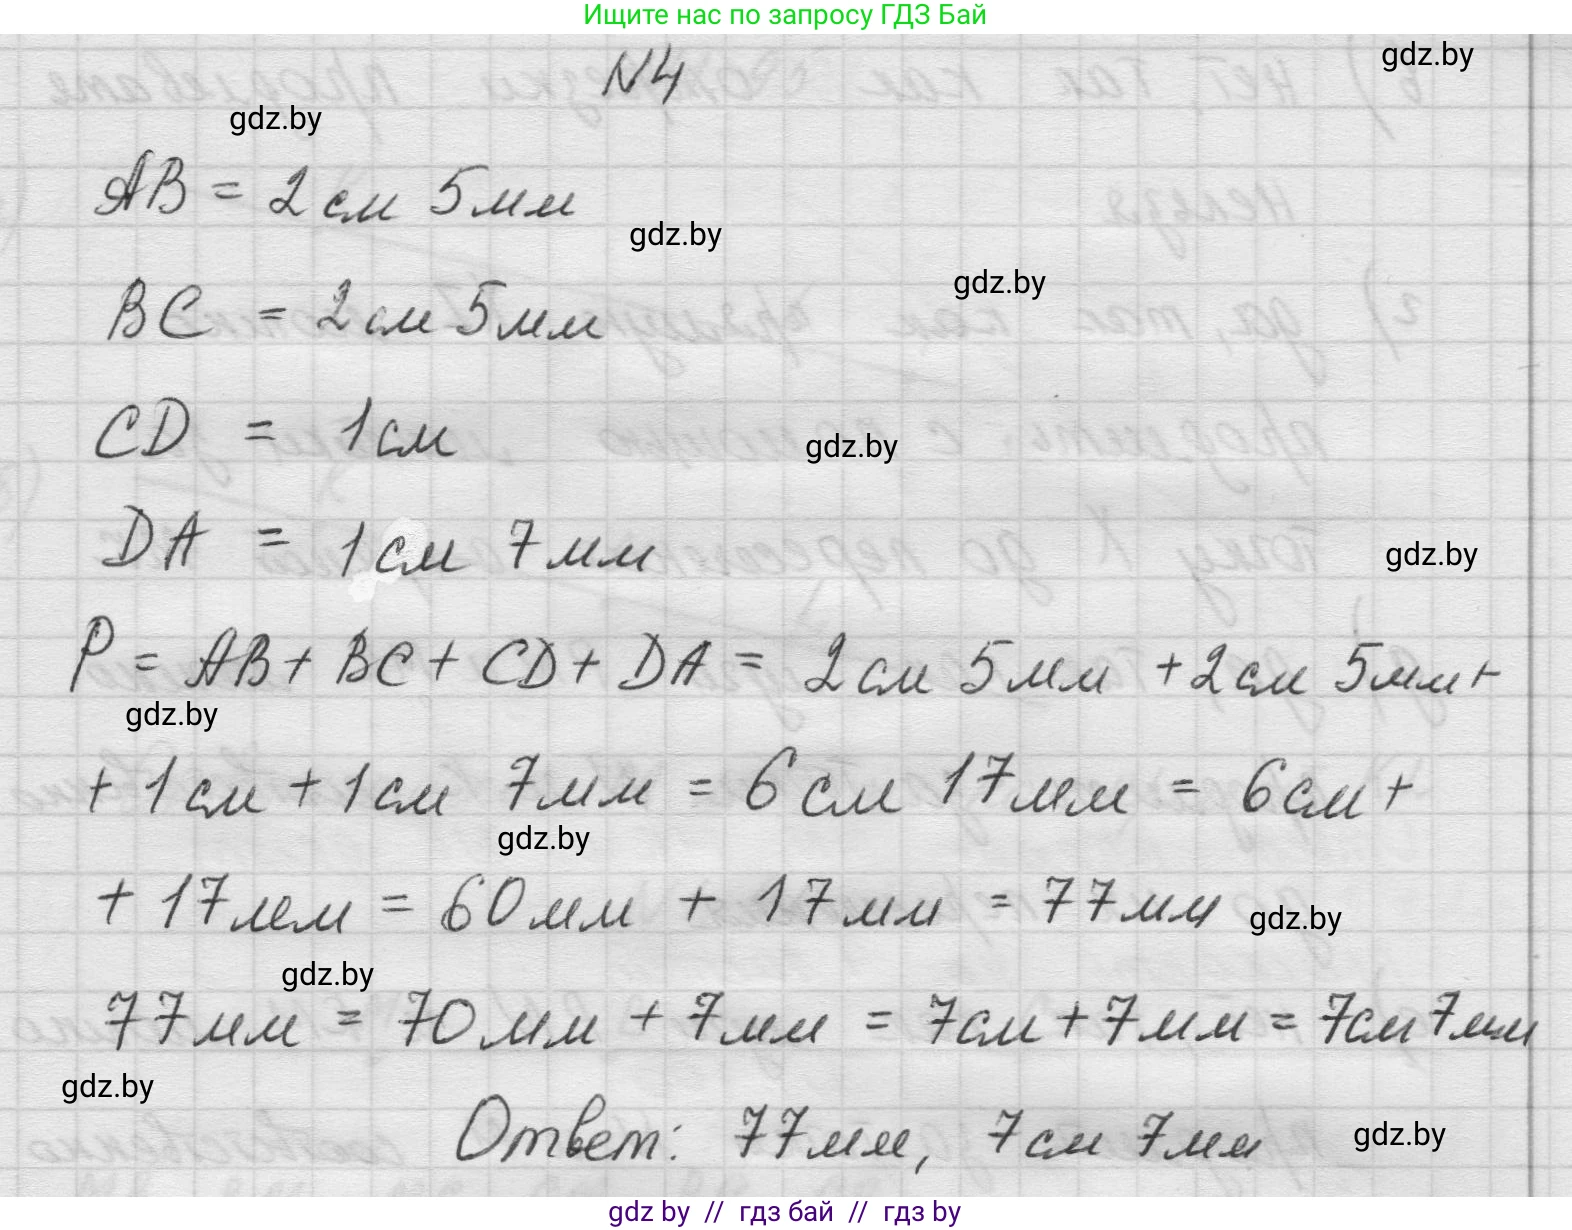 Ищите нас по запросу ГДЗ Бай
N4
gdz.by
gdz.by
AB = 2 см 5 мм
gdz.by
gdz.by
BC = 2 см 5 мм
CD = 1 см
gdz.by
DA = 1 см 7 мм
gdz.by
P = AB + BC + CD + DA = 2 см 5 мм + 2 см 5 мм +
gdz.by
+ 1 см + 1 см 7 мм = 6 см 17 мм = 6 см +
gdz.by
+ 17 мм = 60 мм + 17 мм = 77 мм
gdz.by
gdz.by
77 мм = 70 мм + 7 мм = 7 см + 7 мм = 7 см 7 мм
gdz.by
Ответ: 77 мм, 7 см 7 мм
gdz.by
gdz by // гдз бай // гдз by